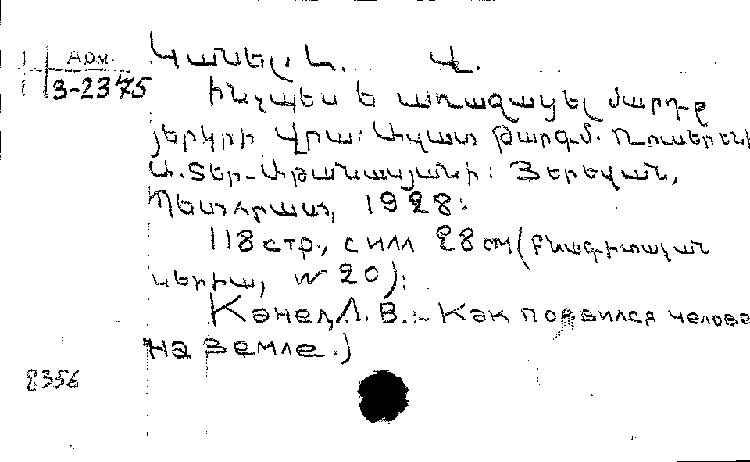 Арм.
3-2375
Կանել. Լ. Վ.
Ինչպես է առաջացել մարդը
յերկրի վրա: Ազատ թարգմ. Ռուսերենի
Ա. Տեր-: Յերեվան,
Պետհրատ, 1928:
118 стр., с илл 28 см (Բնագիտական
սերիա, № 20):
Канел, Л. В.:- Как появился челове
на земле.)
8356